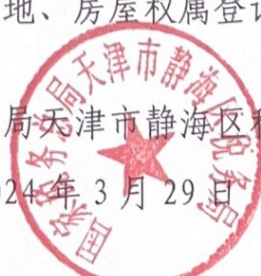 地、房屋权属登记
局天津市静海区税
024年3月29日
国家税务总局天津市静海区税务局